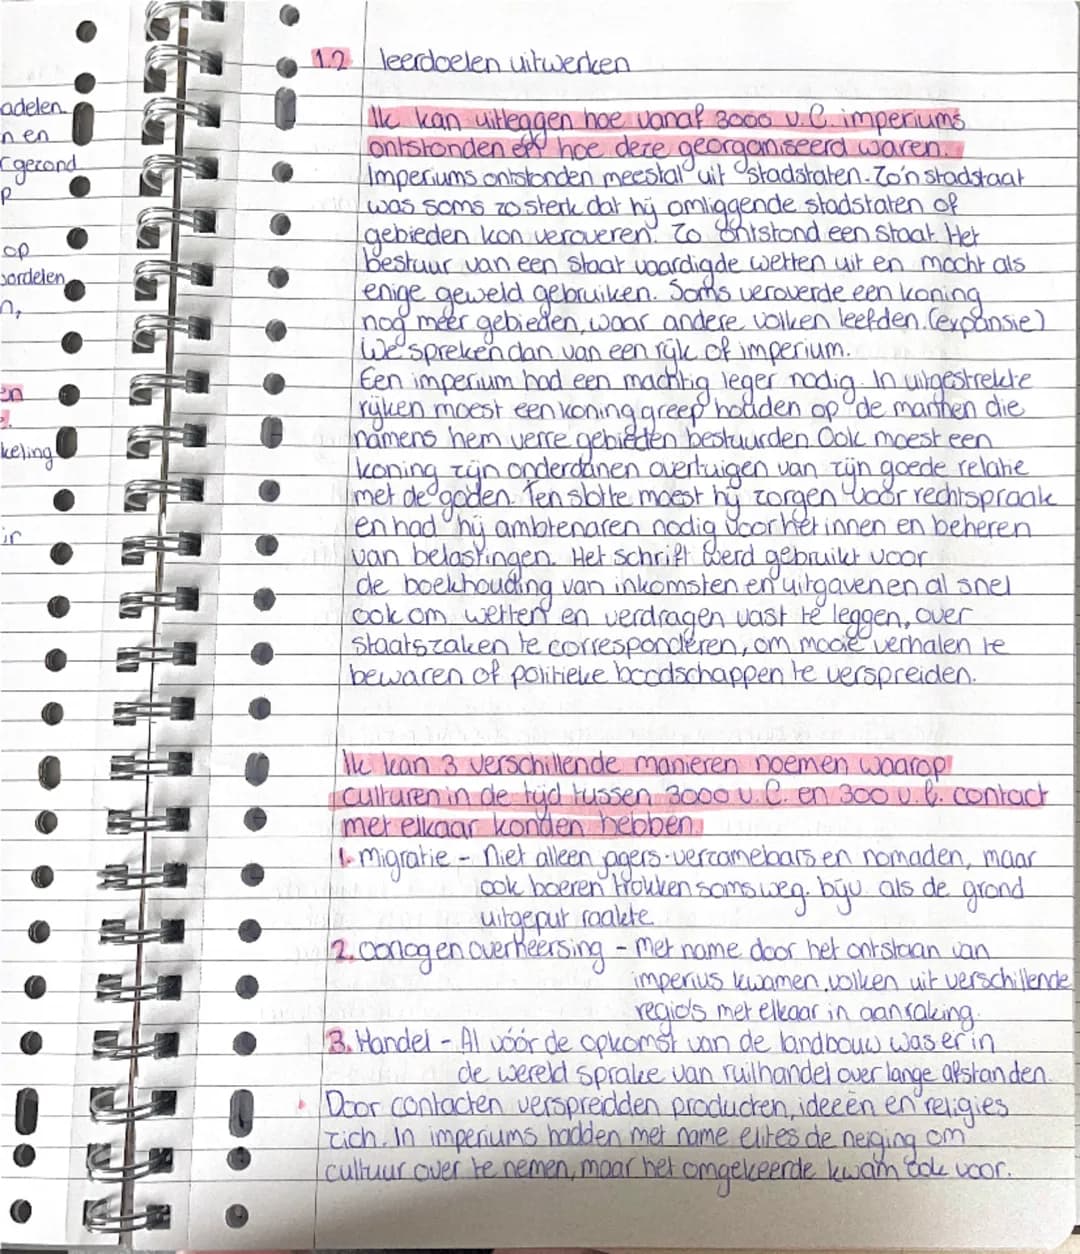 adelen
n en
gerond
p
op
oordelen,
n,
en
keling
ir
1.2 leerdoelen uitwerken
Ik kan uitleggen hoe vanaf 3000 v.C. imperiums
ontstonden en hoe deze georganiseerd waren.
Imperiums ontstonden meestal uit stadstaten. Zo'n stadstaat
was soms zo sterk dat hij omliggende stadstaten of
gebieden kon veroveren. Zo ontstond een staat. Het
bestuur van een staat vaardigde wetten uit en mocht als
enige geweld gebruiken. Soms veroverde een koning
nog meer gebieden, waar andere volken leefden. (expansie)
We spreken dan van een rijk of imperium.
Een imperium had een machtig leger nodig. In uitgestrekte
rijken moest een koning greep houden op de mannen die
namens hem verre gebieden bestuurden. Ook moest een
koning zijn onderdanen overtuigen van zijn goede relatie
met de goden. Ten slotte moest hij zorgen voor rechtspraak
en had hij ambtenaren nodig voor het innen en beheren
van belastingen. Het schrift werd gebruikt voor
de boekhouding van inkomsten en uitgaven en al snel
ook om wetten en verdragen vast te leggen, over
staatszaken te corresponderen, om mooie verhalen te
bewaren of politieke boodschappen te verspreiden.
Ik kan 3 verschillende manieren noemen waarop
culturen in de tijd tussen 3000 v.C. en 300 v.C. contact
met elkaar konden hebben.
1. migratie - Niet alleen jagers-verzamelaars en nomaden, maar
ook boeren trokken soms weg. bijv. als de grond
uitgeput raakte.
2. oorlog en overheersing - met name door het ontstaan van
imperius kwamen volken uit verschillende
regio's met elkaar in aanraking.
3. Handel - Al vóór de opkomst van de landbouw was er in
de wereld sprake van ruilhandel over lange afstanden.
Door contacten verspreidden producten, ideeën en religies
zich. In imperiums hadden met name elites de neiging om
cultuur over te nemen, maar het omgekeerde kwam ook voor.